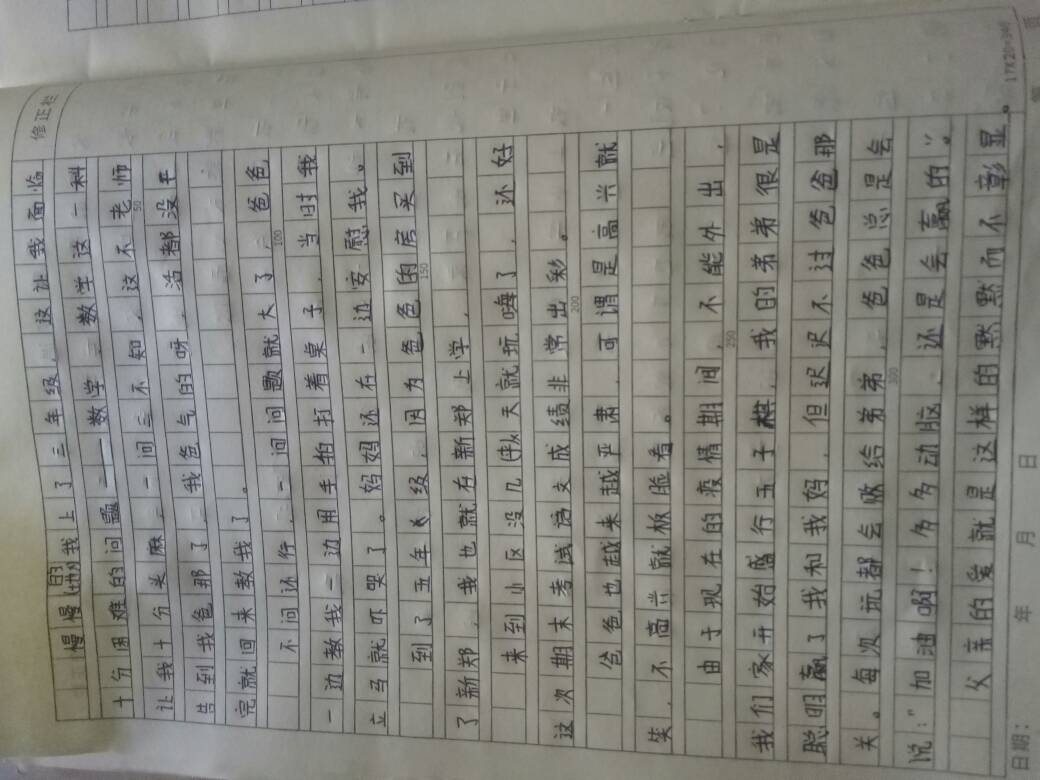 修正栏
慢慢的我上了三年级,这让我面临
十分困难的问题——数学,数学这一科
让我十分头麻,一问三不知,这不老师
告到我爸那了,我爸气的呀,活都没干
完就回来教我了。
不问还行,一问问题就大了,爸爸
一边教我一边用手拍打着桌子,当时我
立马就吓哭了。妈妈还在一边安慰我。
到了五年级,因为爸爸的房买到
了新郑,我也就在新郑上学,
来到小区没几天就玩嗨了,还好
这次期末考试语文成绩非常出彩。
爸爸也越来越严肃,可谓是高兴就
笑,不高兴就板脸看。
由于现在的疫情期间,不能外出,
我们家开始盛行五子棋,我的弟弟很是
聪明赢了我和我妈,但迟迟不过爸爸那
关。每次玩都会败给弟弟,爸爸总是会
说:"加油啊!多多动脑,还是会赢的"。
父亲的爱就是这样的默默而不彰显。
50
100
150
200
250
300
17×20=340
日期: 年 月 日